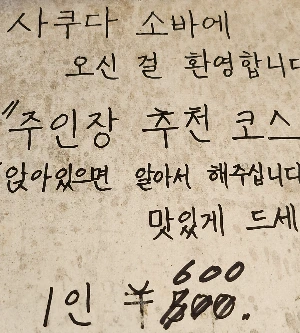 사쿠다 소바에
오신 걸 환영합니다
"주인장 추천 코스
앉아있으면 알아서 해주십니다
맛있게 드세
1인 ¥600.